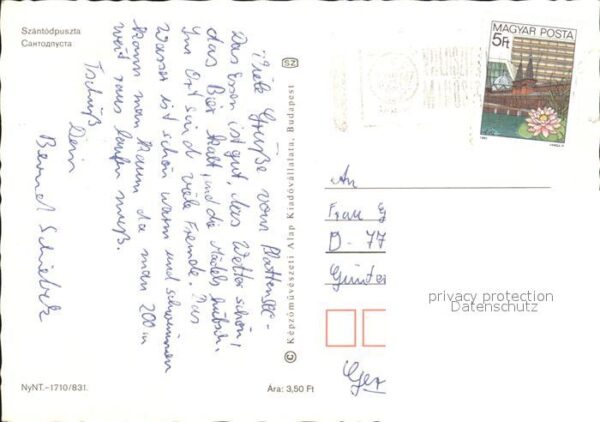 Szántódpuszta
Сантодпуста
Viele Grüße vom Plattensee.
Das Essen ist gut, das Wetter schön,
das Bier kalt, und die Mädels hübsch.
Im Ort sind viele Fremde. Das
Wasser ist schön warm und schwimmen
kann man kaum da man 200 m
weit raus laufen muß.
Tschüß
Dein
Bernd
NyNT.–1710/831.
SZ
© Képzőművészeti Alap Kiadóvállalata, Budapest
Ára: 3,50 Ft
MAGYAR POSTA
5Ft
An
Frau
D - 77
Günter
privacy protection
Datenschutz
Ger